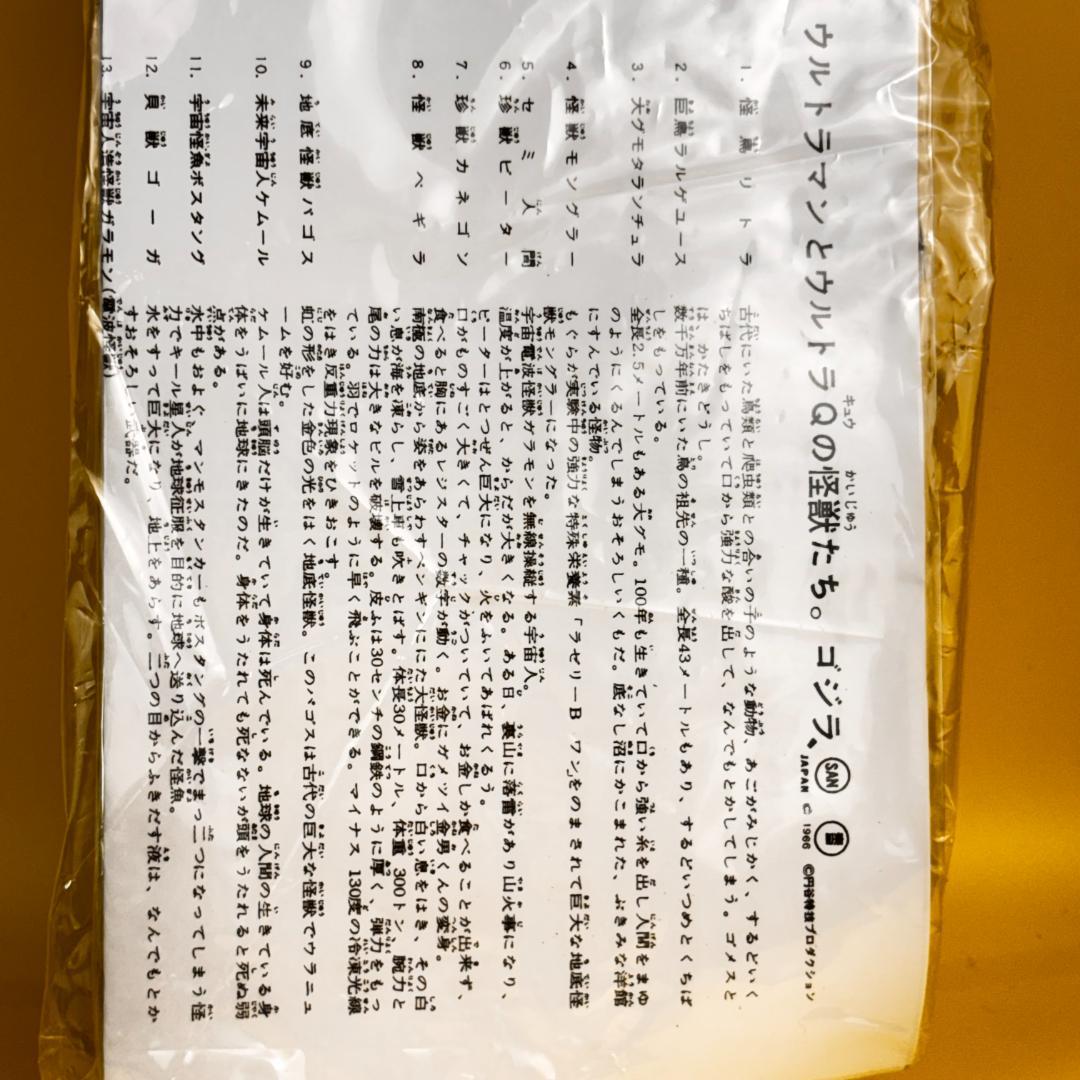 ウルトラマンとウルトラQの怪獣たち。ゴジラ、 SAN JAPAN © 1966 ©円谷特技プロダクション
1. 怪鳥リトラ 古代にいた鳥類と爬虫類との合いの子のような動物、あごがみじかく、するどいく
ちばしをもっていて口から強力な酸を出して、なんでもとかしてしまう。ゴメスと
は、かたきどうし。
2. 巨鳥ラルゲユース 数千万年前にいた鳥の祖先の一種。全長43メートルもあり、するどいつめとくちば
しをもっている。
3. 大グモタランチュラ 全長2.5メートルもある大グモ。100年も生きていて口から強い糸を出し人間をまゆ
のようにくるんでしまうおそろしいくもだ。底なし沼にかこまれた、ぶきみな洋館
にすんでいる怪物。
4. 怪獣モングラー もぐらが実験中の強力な特殊栄養素「ラゼリーB ワン」をのまされて巨大な地底怪
獣モングラーになった。
5. セミ人間 宇宙電波怪獣ガラモンを無線操縦する宇宙人。
6. 珍獣ピーター 温度が上がると、からだが大きくなる。ある日、裏山に落雷があり山火事になり、
ピーターはとつぜん巨大になり、火をふいてあばれくるう。
7. 珍獣カネゴン 口がものすごく大きくて、チャックがついていて、お金しか食べることが出来ず、
食べると胸にあるレジスターの数字が動く。お金にガメツイ金男くんの変身。
8. 怪獣ペギラ 南極の地底から姿をあらわすペンギンににた大怪獣。口から白い息をはき、その白
い息が海を凍らし、雪上車も吹きとばす。体長30メートル、体重300トン、腕力と
尾の力は大きなビルを破壊する。皮ふは30センチの鋼鉄のように厚く、弾力をもっ
ている。羽でロケットのように早く飛ぶことができる。マイナス130度の冷凍光線
をはき反重力現象をひきおこす。
9. 地底怪獣パゴス 虹の形をした金色の光をはく地底怪獣。このパゴスは古代の巨大な怪獣でウラニュ
ームを好む。
10. 未来宇宙人ケムール ケムール人は頭脳だけが生きていて身体は死んでいる。地球の人間の生きている身
体をうばいに地球にきたのだ。身体をうたれても死なないが頭をうたれると死ぬ弱
点がある。
11. 宇宙怪魚ボスタング 水中もおよぐ、マンモスタンカーもボスタングの一撃でまっ二つになってしまう怪
力でキール星人が地球征服を目的に地球へ送り込んだ怪魚。
12. 貝獣ゴーガ 水をすって巨大になり、地上をあらす。二つの目からふきだす液は、なんでもとか
すおそろしい武器だ。
13. 宇宙人造怪獣ガラモン(電波怪獣)